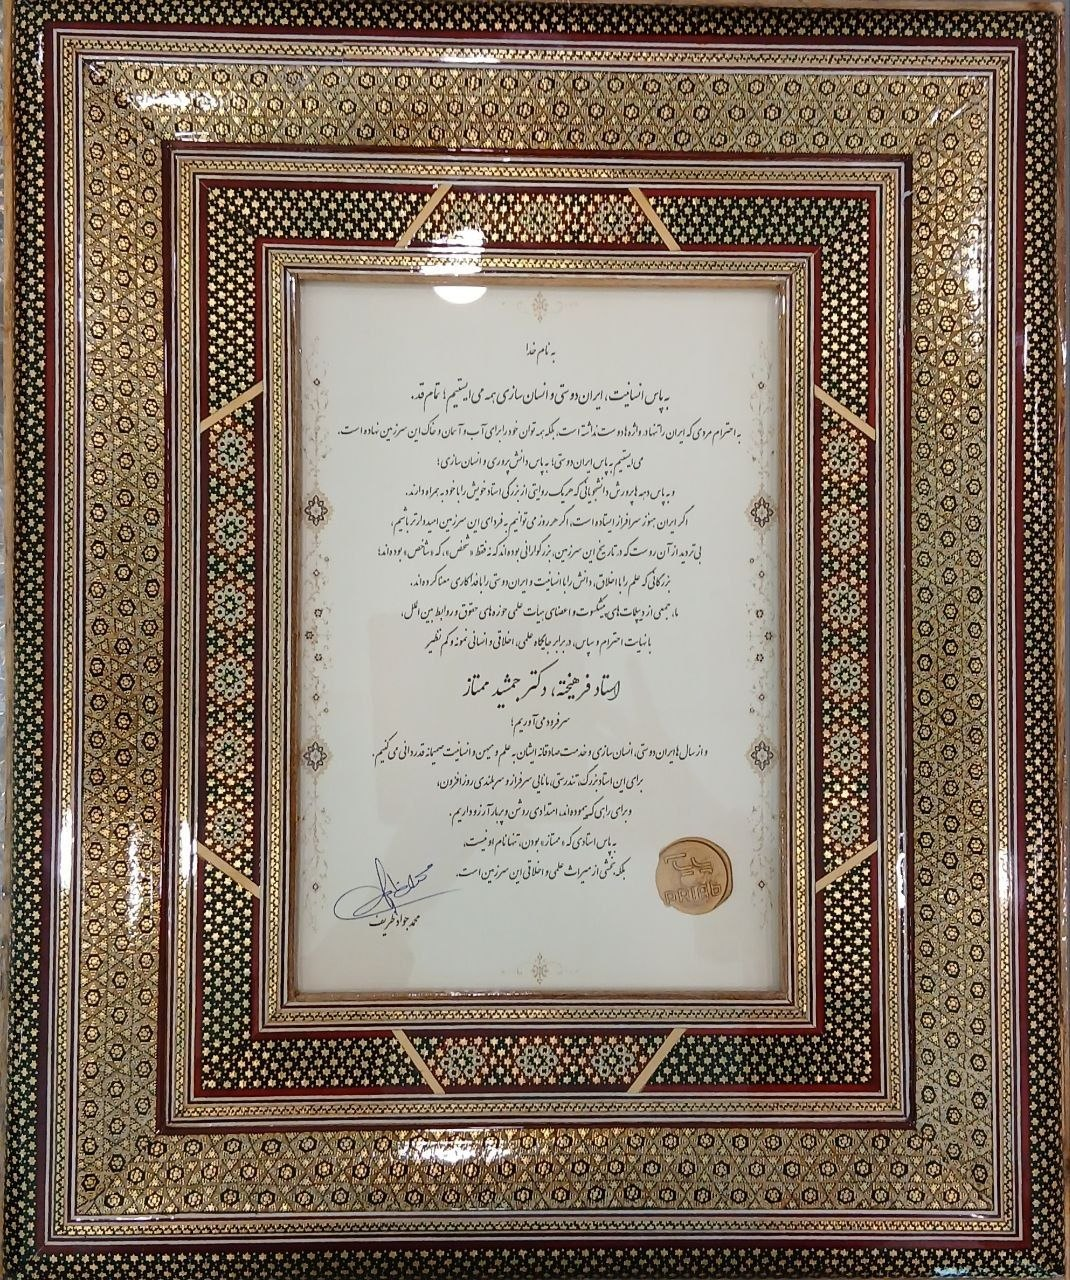 به نام خدا
به پاس انسانیت، ایران دوستی و انسان سازی همه می ایستیم؛ تمام قد.
به احترام مردی که ایران را تنها در واژه ها دوست نداشته است، بلکه همه توان خود را برای آب و آسمان و خاک این سرزمین نهاده است.
می ایستیم به پاس ایران دوستی؛ به پاس دانش پروری و انسان سازی؛
و به پاس دهه ها پرورش دانشجویانی که هر یک روایتی از بزرگی استاد خویش را با خود به همراه دارند.
اگر ایران هنوز سرافراز ایستاده است، اگر هر روز می توانیم به فردای این سرزمین امیدوارتر باشیم،
بی تردید از آن روست که در تاریخ این سرزمین، بزرگوارانی بوده اند که نه فقط «شخص»، که «شاخص» بوده اند؛
بزرگانی که علم را با اخلاق، دانش را با انسانیت و ایران دوستی را با فداکاری معنا کرده اند.
ما، جمعی از دیپلمات های پیشکسوت و اعضای هیات علمی حوزه های حقوق و روابط بین الملل،
با نهایت احترام و سپاس، در برابر جایگاه علمی، اخلاقی و انسانی نمونه و کم نظیر
استاد فرهیخته، دکتر جمشید ممتاز
سر فرود می آوریم؛
و از سال ها ایران دوستی، انسان سازی و خدمت صادقانه ایشان به علم و میهن و انسانیت صمیمانه قدردانی می کنیم.
برای این استاد بزرگ، تندرستی، مانایی سرفراز و سربلندی روزافزون،
و برای راهی که پیموده اند، امتدادی روشن و پربار آرزو داریم.
به پاس استادی که «ممتاز» بودن، تنها نام او نیست،
بلکه بخشی از میراث علمی و اخلاقی این سرزمین است.
محمدجواد ظریف